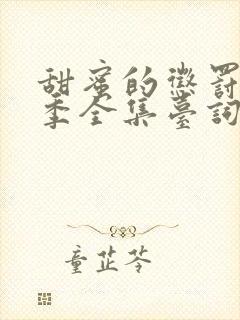 甜蜜的懲罰
季全集臺詞
童芷苓